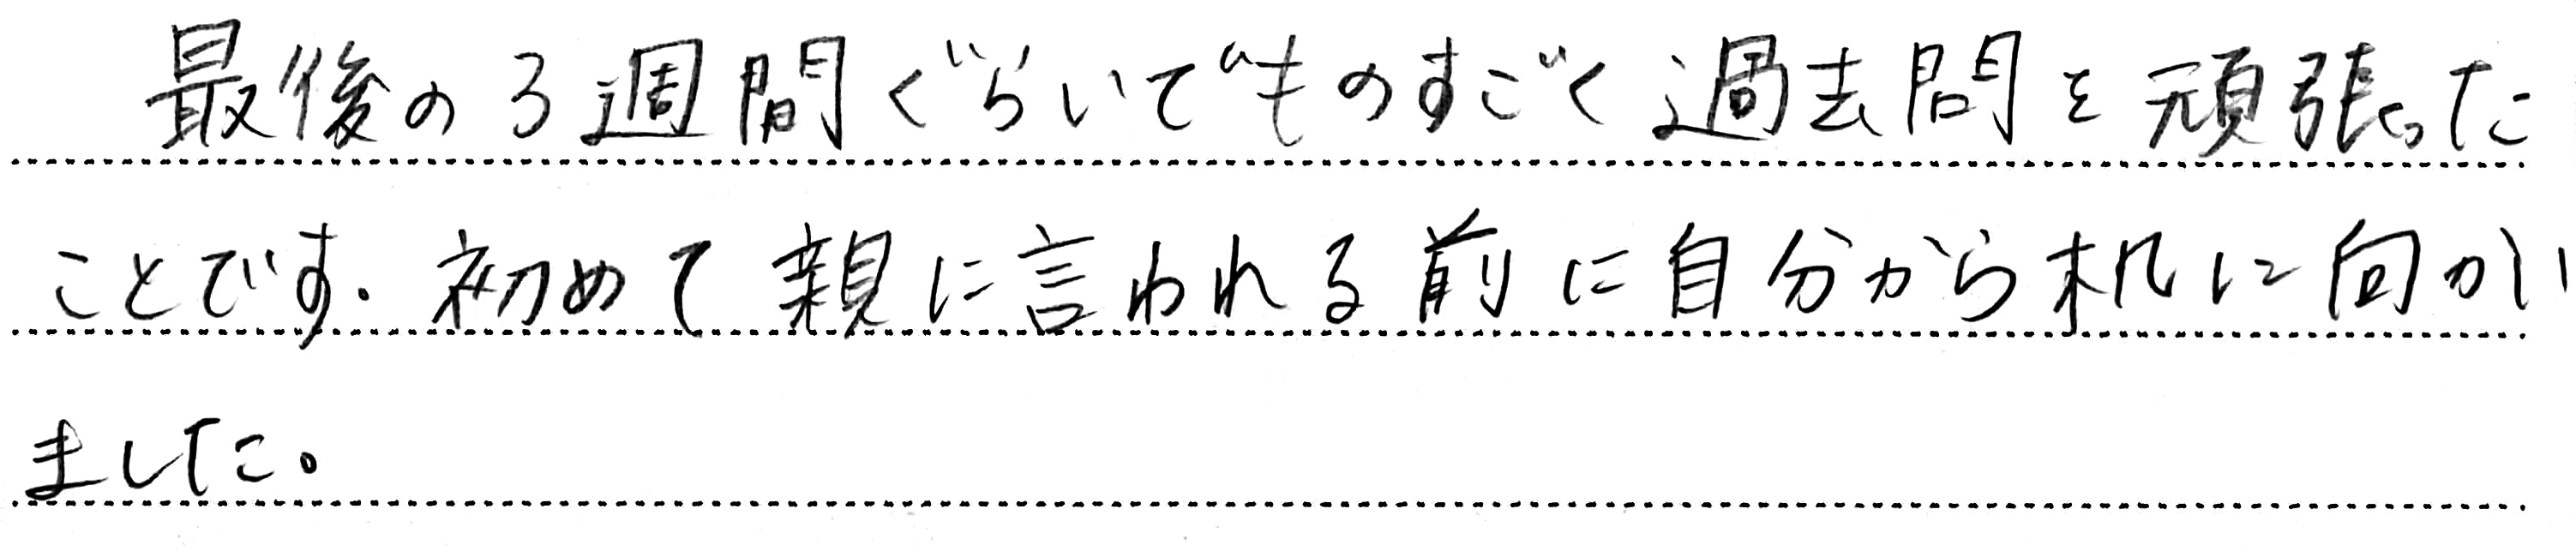 最後の3週間ぐらいでものすごく過去問を頑張った
ことです。初めて親に言われる前に自分から机に向かい
ました。